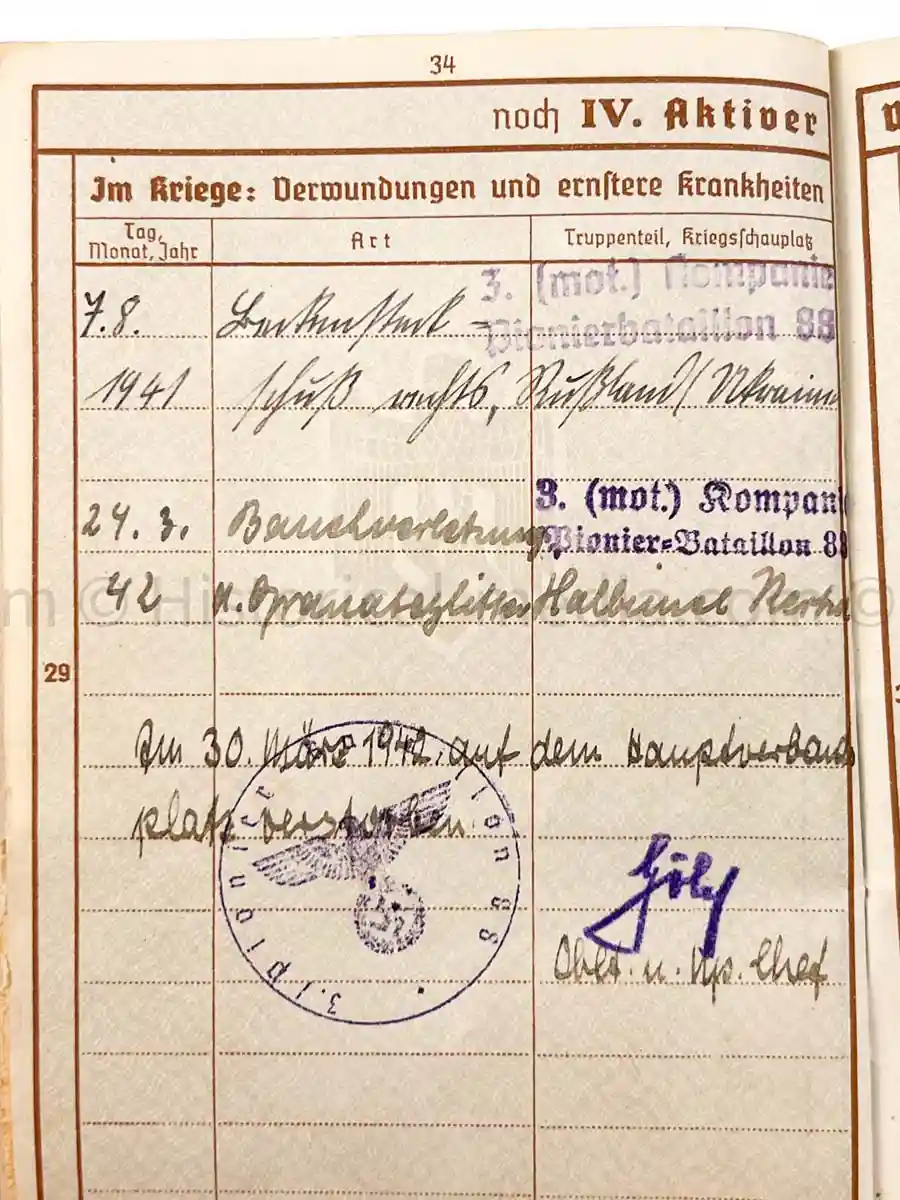 34
noch IV. Aktiver
Im Kriege: Verwundungen und ernstere Krankheiten
Tag, Monat, Jahr
Art
Truppenteil, Kriegsschauplatz
3. (mot.) Kompanie
Pionierbataillon 88
7.8.
1941
schuß rechts,
Rußland/Ukraine
3. (mot.) Kompani
Pionier-Bataillon 88
24. 3.
Bauchverletzung
42
Granatsplitter
Halbinsel Kertsch
29
Im 30. März 1942. auf dem Hauptverband
platz verstorben.
3./Pionier
lon 88
u. Kp. Chef